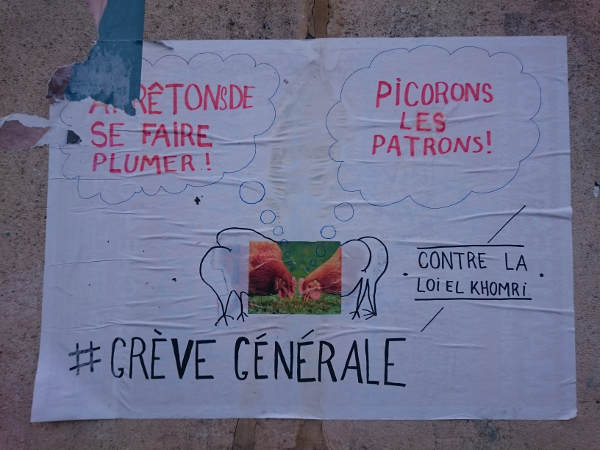 ARRÊTONS DE
SE FAIRE
PLUMER !
PICORONS
LES
PATRONS!
CONTRE LA
LOI EL KHOMRI
# GRÈVE GÉNÉRALE